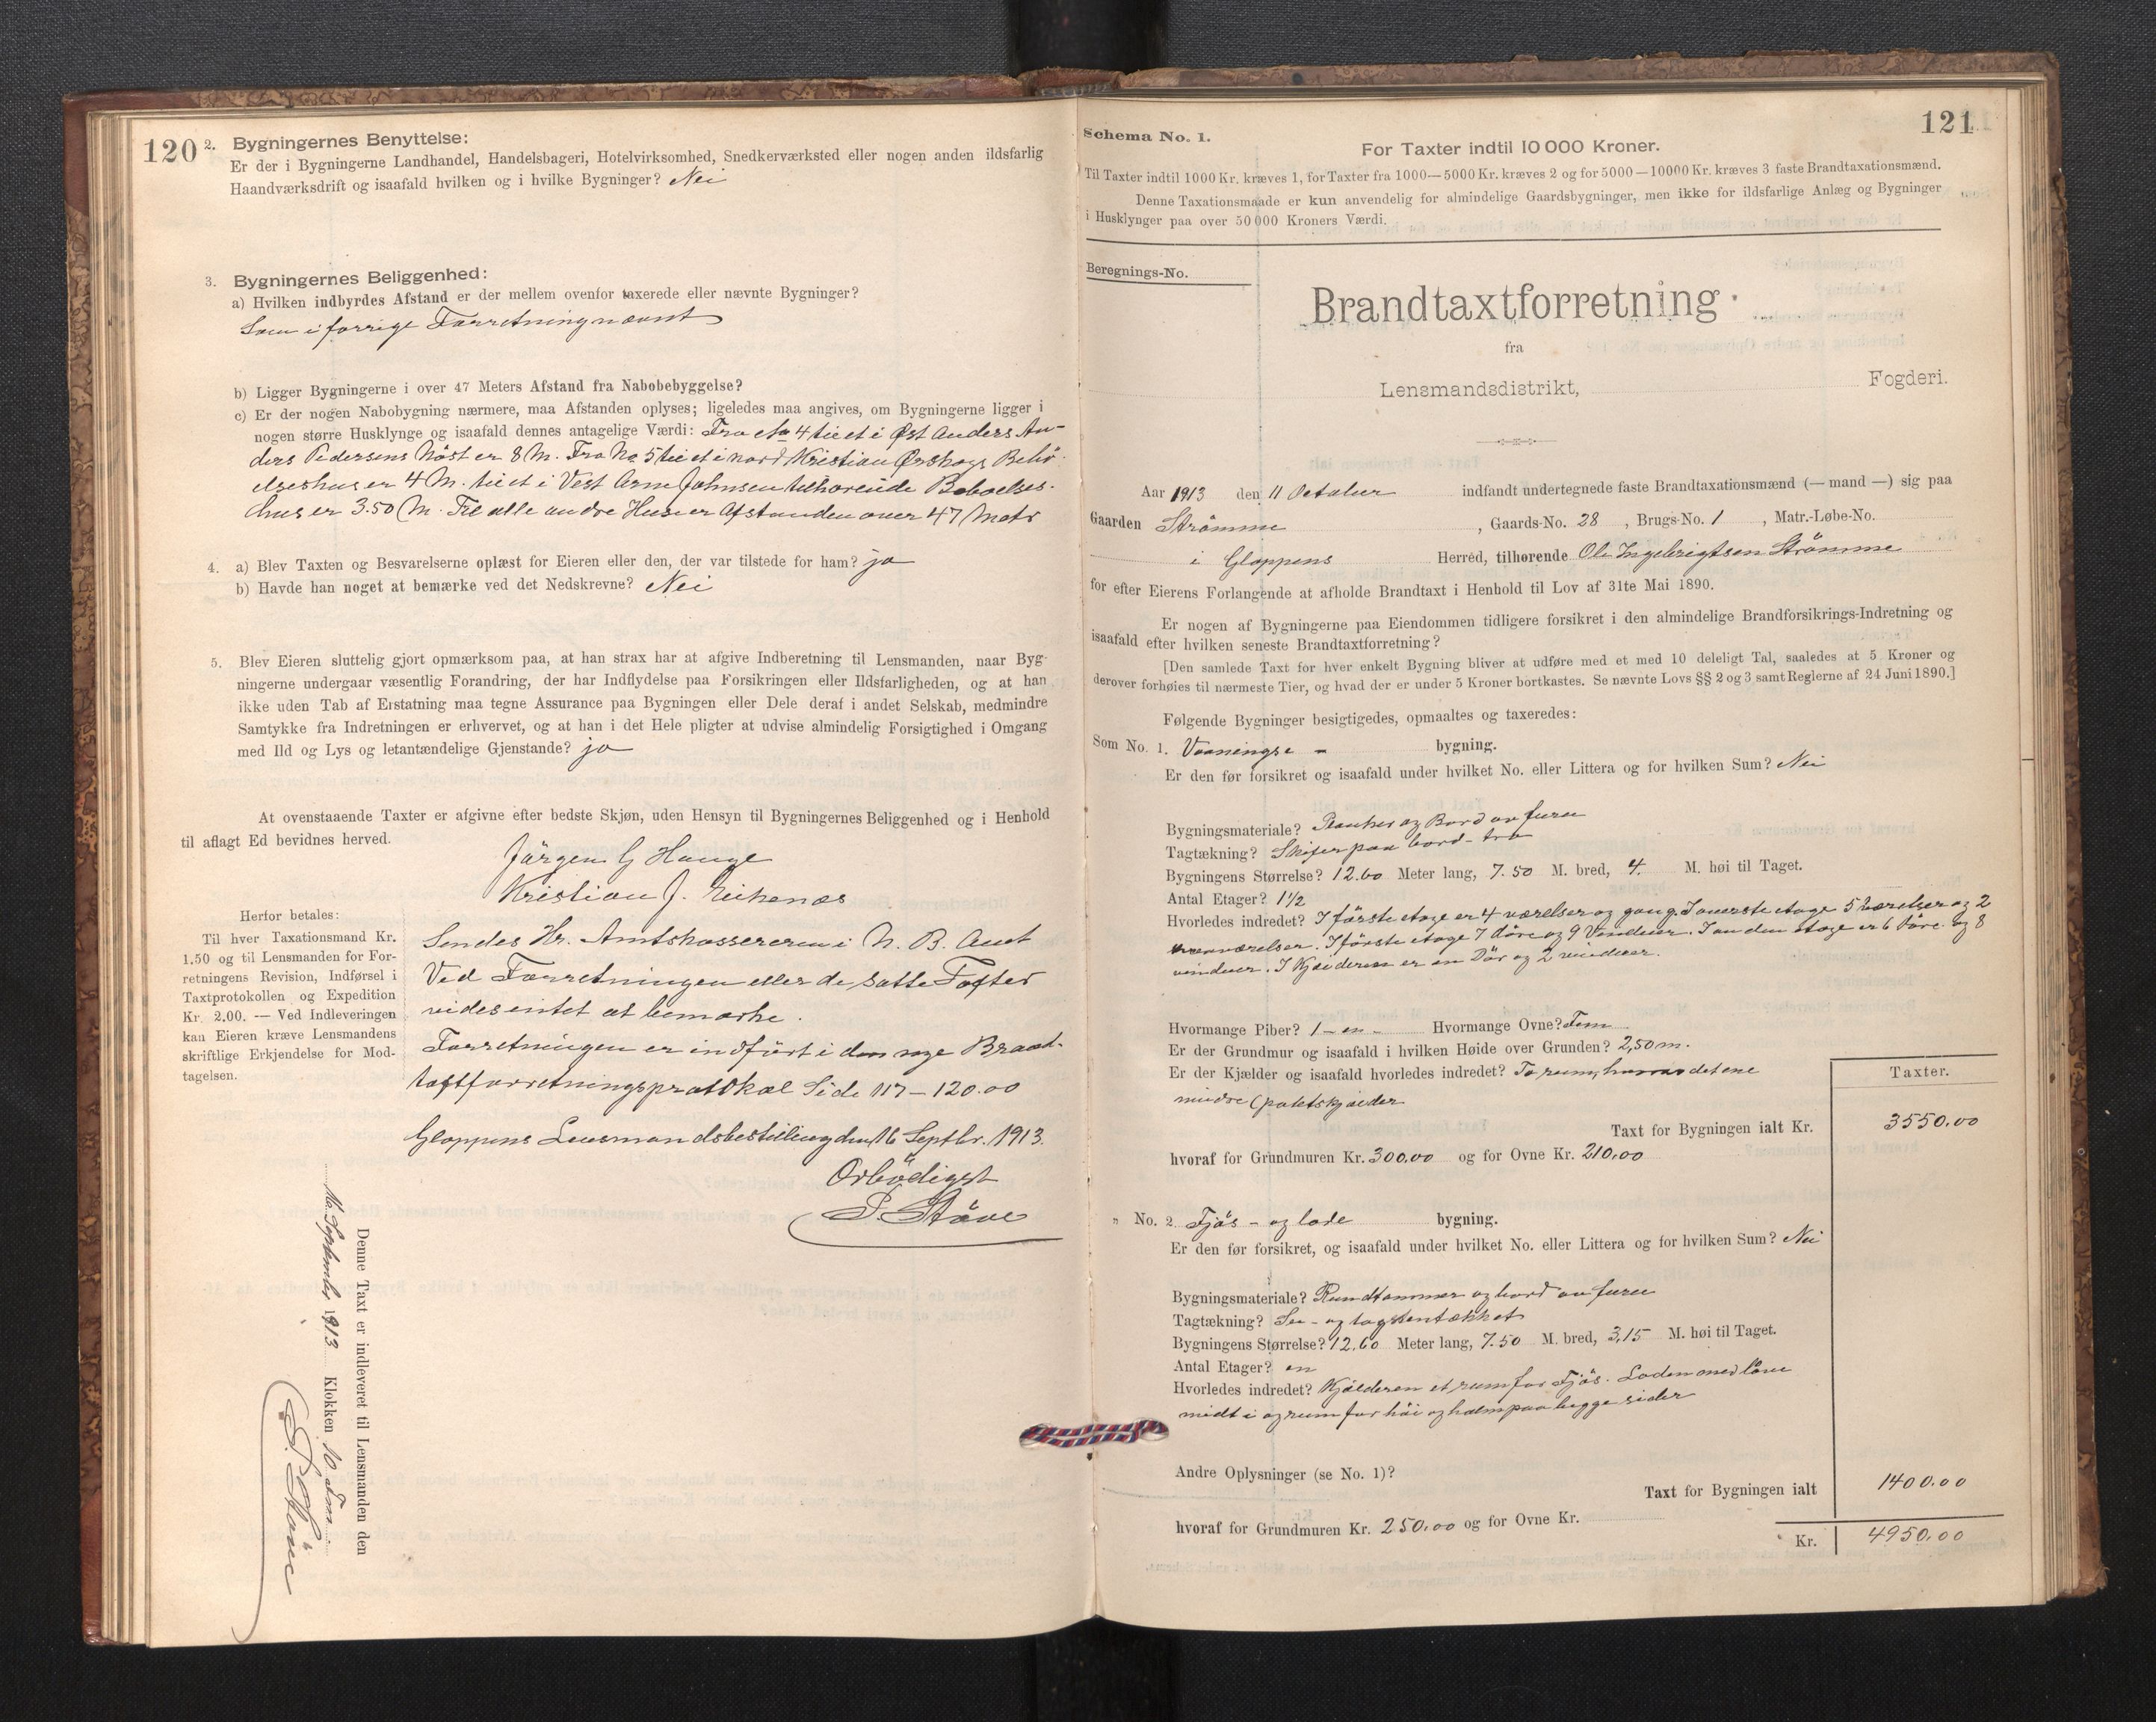 120
2. Bygningernes Benyttelse:
Er der i Bygningerne Landhandel, Handelsbageri, Hotelvirksomhed, Snedkerværksted eller nogen anden ildsfarlig
Haandværksdrift og isaafald hvilken og i hvilke Bygninger? Nei
3. Bygningernes Beliggenhed:
a) Hvilken indbyrdes Afstand er der mellem ovenfor taxerede eller nævnte Bygninger?
Som i forrige Forretning nævnt
b) Ligger Bygningerne i over 47 Meters Afstand fra Nabobebyggelse?
c) Er der nogen Nabobygning nærmere, maa Afstanden oplyses; ligeledes maa angives, om Bygningerne ligger i
nogen større Husklynge og isaafald dennes antagelige Værdi: Fra No 4 til et i Øst Anders An-
ders Pedersens Nöst er 8 M. Fra No 5 til et i nord Kristian Ørskogs Bebo-
elseshus er 4 M. til et i Vest Arne Johnsen tilhorende Beboelses-
hus er 3.50 M. Til alle andre Huse er Afstanden over 47 Metr
4. a) Blev Taxten og Besvarelserne oplæst for Eieren eller den, der var tilstede for ham? ja
b) Havde han noget at bemærke ved det Nedskrevne? Nei
5. Blev Eieren sluttelig gjort opmærksom paa, at han strax har at afgive Indberetning til Lensmanden, naar Byg-
ningerne undergaar væsentlig Forandring, der har Indflydelse paa Forsikringen eller Ildsfarligheden, og at han
ikke uden Tab af Erstatning maa tegne Assurance paa Bygningen eller Dele deraf i andet Selskab, medmindre
Samtykke fra Indretningen er erhvervet, og at han i det Hele pligter at udvise almindelig Forsigtighed i Omgang
med Ild og Lys og letantændelige Gjenstande? ja
At ovenstaaende Taxter er afgivne efter bedste Skjøn, uden Hensyn til Bygningernes Beliggenhed og i Henhold
til aflagt Ed bevidnes herved.
Jörgen G Hauge
Kristian J. Eikenæs
Herfor betales:
Til hver Taxationsmand Kr.
1.50 og til Lensmanden for For-
retningens Revision, Indførsel i
Taxtprotokollen og Expedition
Kr. 2.00. — Ved Indleveringen
kan Eieren kræve Lensmandens
skriftlige Erkjendelse for Mod-
tagelsen.
Sendes Hr. Amtskassereren i N. B. Amt
Ved Forretningen eller de satte Taxter
vides intet at bemærke.
Forretningen er indført i den nye Brand-
taxtforretningsprotokol Side 117 – 120.00
Gloppens Lensmandsbestilling den 16 Septbr. 1913.
Ærbödigst
P. Støve
Denne Taxt er indleveret til Lensmanden den
16 September 1913 Klokken 10 Fm.
121
Schema No. 1.
For Taxter indtil 10 000 Kroner.
Til Taxter indtil 1000 Kr. kræves 1, for Taxter fra 1000—5000 Kr. kræves 2 og for 5000—10000 Kr. kræves 3 faste Brandtaxationsmænd.
Denne Taxationsmaade er kun anvendelig for almindelige Gaardsbygninger, men ikke for ildsfarlige Anlæg og Bygninger
i Husklynger paa over 50 000 Kroners Værdi.
Beregnings-No.
Brandtaxtforretning
fra
Lensmandsdistrikt, Fogderi.
Aar 1913 den 11 October indfandt undertegnede faste Brandtaxationsmænd (— mand —) sig paa
Gaarden Strömme , Gaards-No. 28 , Brugs-No. 1 , Matr.-Løbe-No.
i Gloppens Herred, tilhørende Ole Ingebrigtsen Strömme
for efter Eierens Forlangende at afholde Brandtaxt i Henhold til Lov af 31te Mai 1890.
Er nogen af Bygningerne paa Eiendommen tidligere forsikret i den almindelige Brandforsikrings-Indretning og
isaafald efter hvilken seneste Brandtaxtforretning?
[Den samlede Taxt for hver enkelt Bygning bliver at udføre med et med 10 deleligt Tal, saaledes at 5 Kroner og
derover forhøies til nærmeste Tier, og hvad der er under 5 Kroner bortkastes. Se nævnte Lovs §§ 2 og 3 samt Reglerne af 24 Juni 1890.]
Følgende Bygninger besigtigedes, opmaaltes og taxeredes:
Som No. 1. Vaanings - bygning.
Er den før forsikret og isaafald under hvilket No. eller Littera og for hvilken Sum? Nei
Bygningsmateriale? Planker og Bord av furu
Tagtækning? Skifer paa bord-tro
Bygningens Størrelse? 12.60 Meter lang, 7.50 M. bred, 4. M. høi til Taget.
Antal Etager? 1½
Hvorledes indredet? I förste etage er 4 værelser og gang. I överste etage 5 værelser og 2
værelser. I förste etage 7 döre og 9 Vinduer. I anden etage er 6 döre og 8
vinduer. I Kjælderen er en Dör og 2 vinduer.
Hvormange Piber? 1 – en – Hvormange Ovne? Fem
Er der Grundmur og isaafald i hvilken Høide over Grunden? 2,50 m.
Er der Kjælder og isaafald hvorledes indredet? To rum, hvorav det ene
mindre (potetskjælder
Taxter.
Taxt for Bygningen ialt Kr. 3550.00
hvoraf for Grundmuren Kr. 300.00 og for Ovne Kr. 210.00
„ No. 2 Fjös - og lade bygning.
Er den før forsikret, og isaafald under hvilket No. eller Littera og for hvilken Sum? Nei
Bygningsmateriale? Rundtømmer og bord av furu
Tagtækning? og
Bygningens Størrelse? 12.60 Meter lang, 7.50 M. bred, 3,15 M. høi til Taget.
Antal Etager? en
Hvorledes indredet? Kjælderen et rum for Fjös. Laden med låve
midt i og rum for höi og halm paa begge sider
Andre Oplysninger (se No. 1)?
Taxt for Bygningen ialt 1400.00
hvoraf for Grundmuren Kr. 250.00 og for Ovne Kr.
Kr. 4950.00